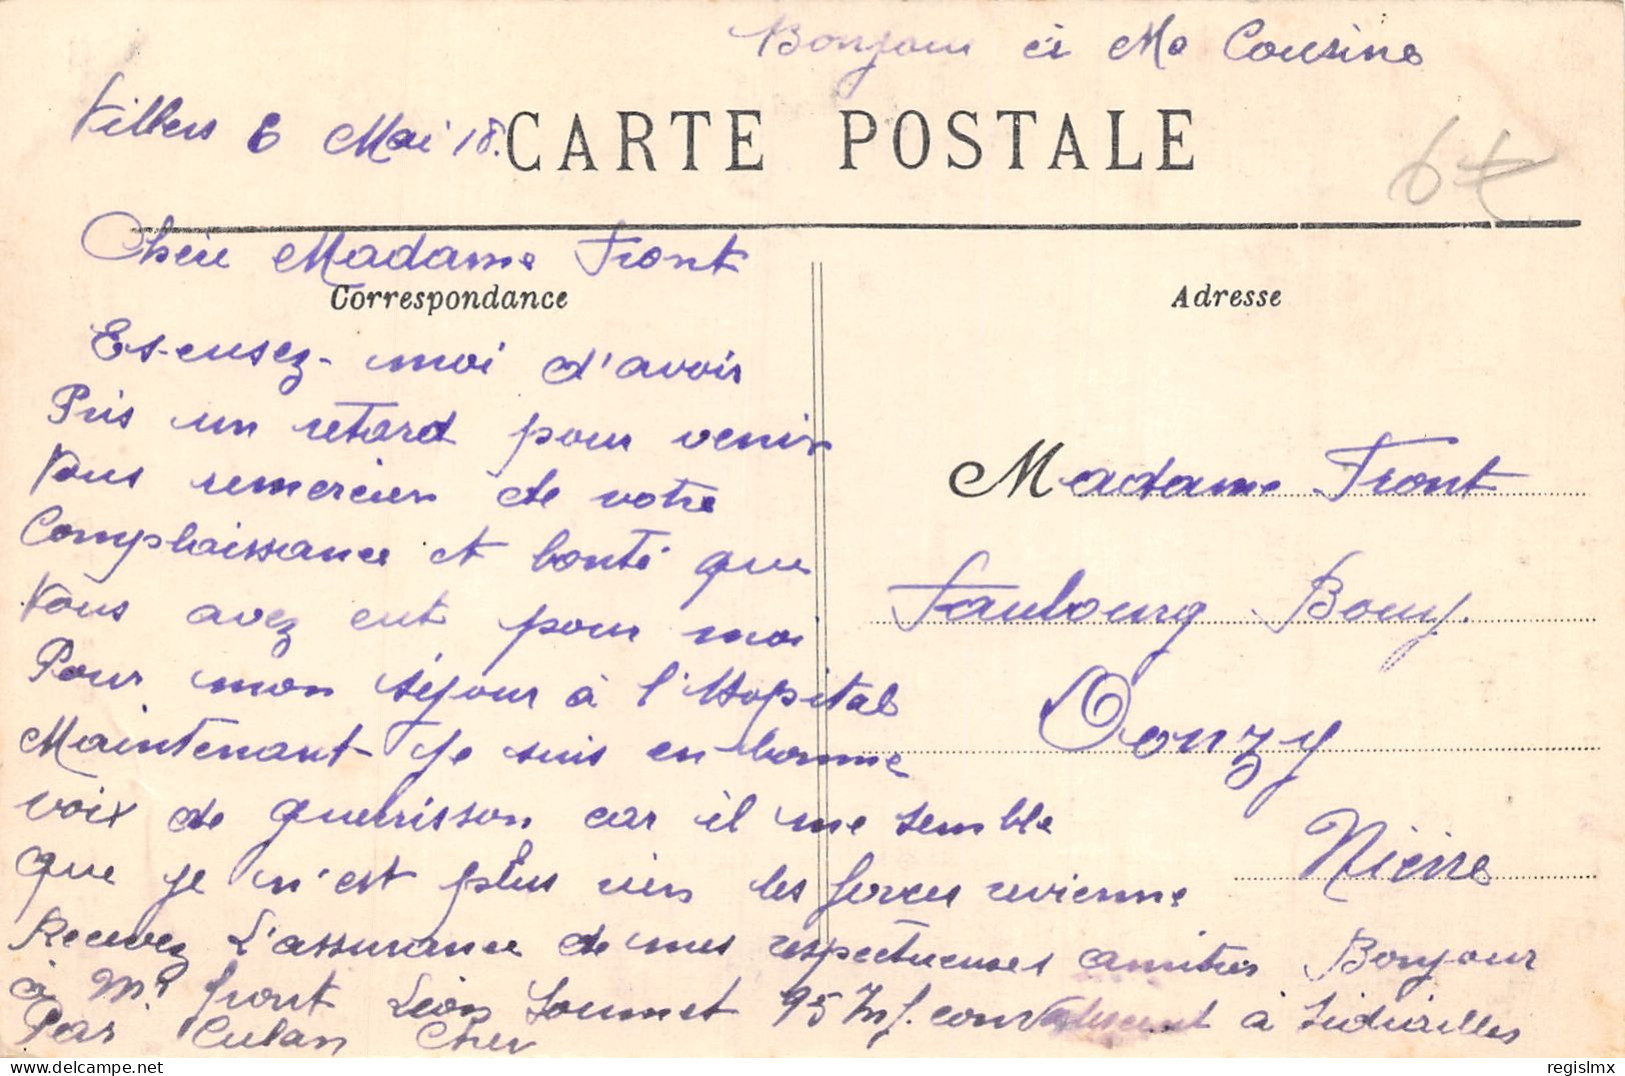 Bonjour à Me Cousine
Villers 6 Mai 18.
CARTE POSTALE
6€
Chère Madame Front
Correspondance
Es-cusez-moi d'avoir
Pris un retard pour venir
Vous remercier de votre
Complaissance et bonté que
Vous avez eut pour moi
Pour mon séjour à l'Hopital
Maintenant je suis en bonne
voix de guerrisson car il me semble
que je n'est plus rien les forces revienne
Recevez L'assurance de mes respectueuses amitiés Bonjour
à Mr front Léon Soumet 95 Inf. convalescent à
Par Culan Cher
Adresse
Madame Front
Faubourg Bouy.
Donzy
Nièvre
regislmx